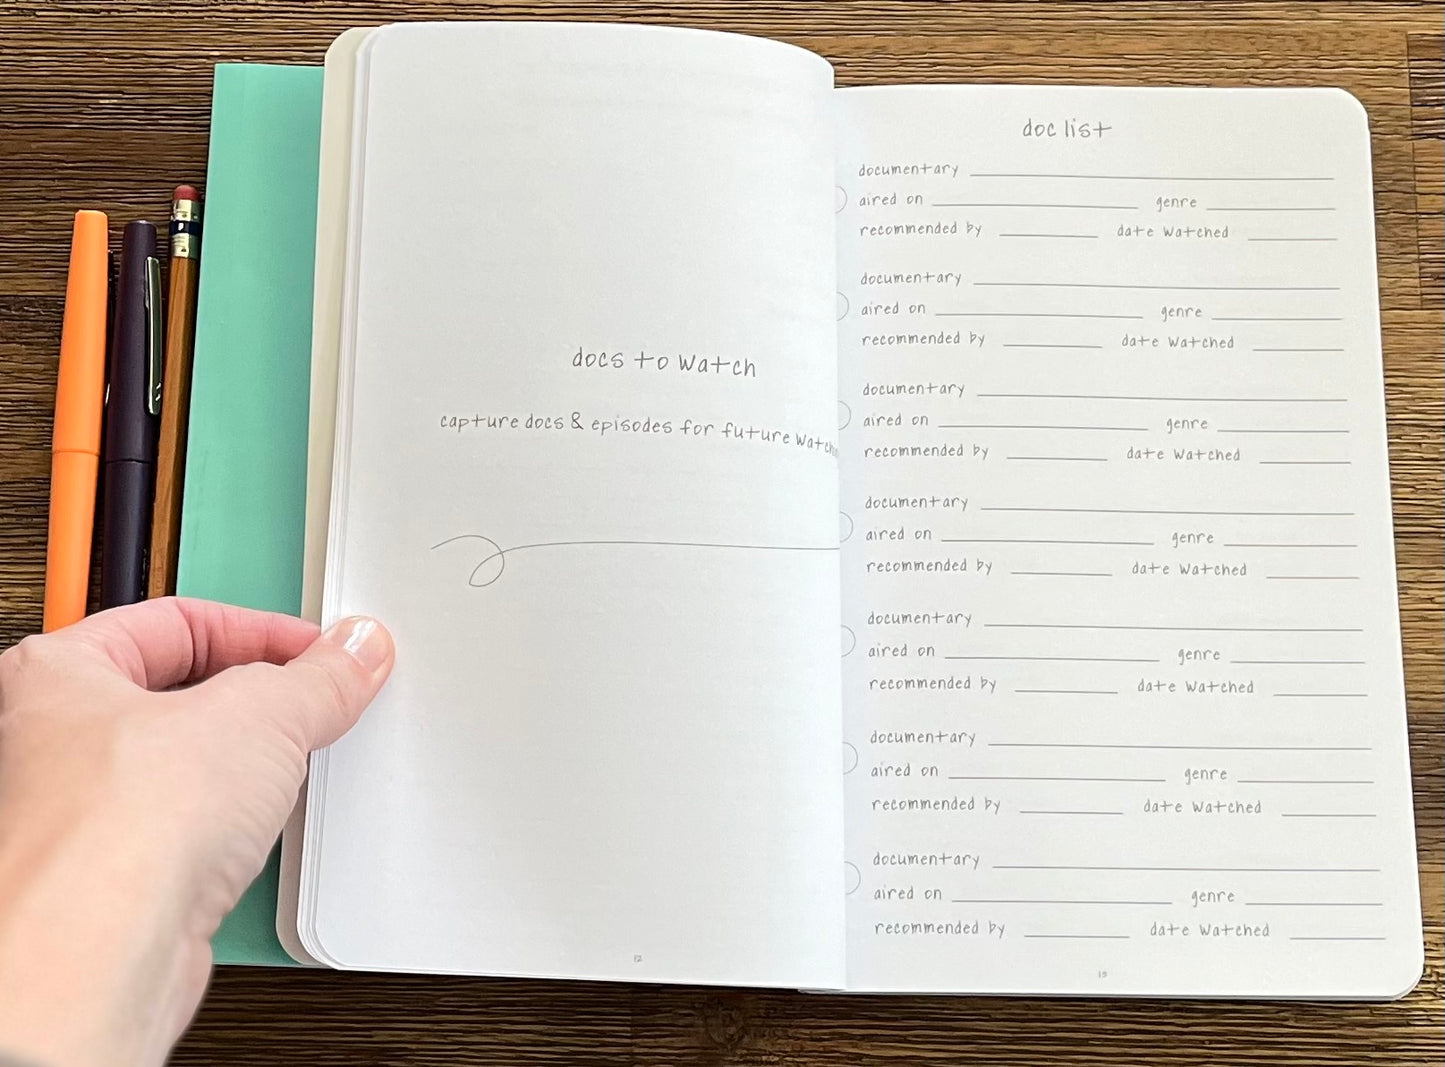 docs to watch
capture docs & episodes for future
12
doc list
documentary
aired on genre
recommended by date watched
documentary
aired on genre
recommended by date watched
documentary
aired on genre
recommended by date watched
documentary
aired on genre
recommended by date watched
documentary
aired on genre
recommended by date watched
documentary
aired on genre
recommended by date watched
documentary
aired on genre
recommended by date watched
13